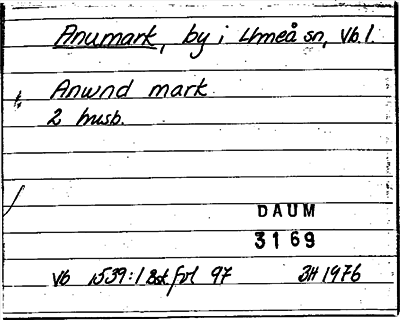 Anumark, by i Umeå sn, Vb.l.
Anwnd mark
2 husb.
DAUM
3169
Vb 1539:1 Bsk fol 97 3H 1976